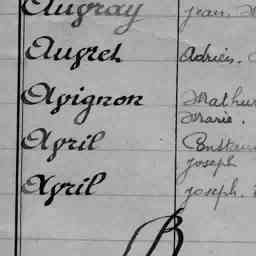 Augray Jean.
Augrel Adrien.
Avignon Mathur
Marie.
Avril Constan
Joseph
Avril Joseph.
B